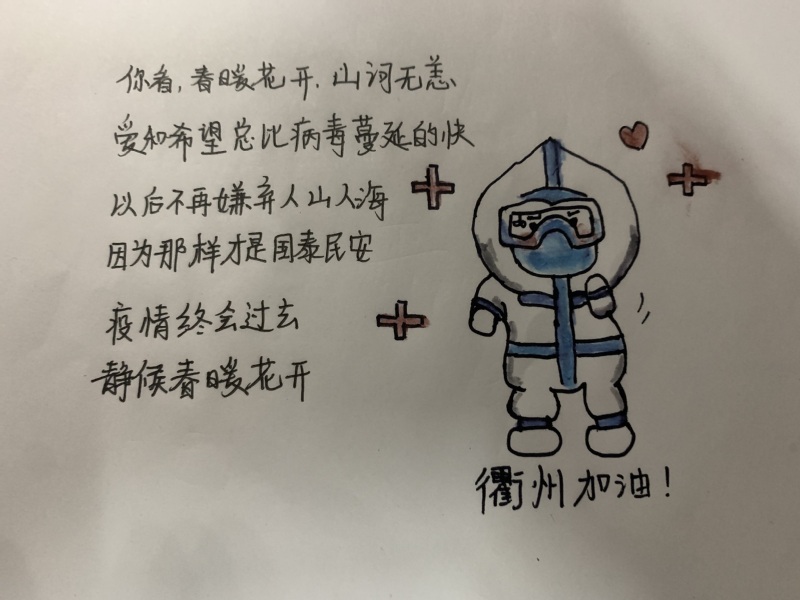 你看,春暖花开.山河无恙
爱和希望总比病毒蔓延的快
以后不再嫌弃人山人海
因为那样才是国泰民安
疫情终会过去
静候春暖花开
衢州加油!